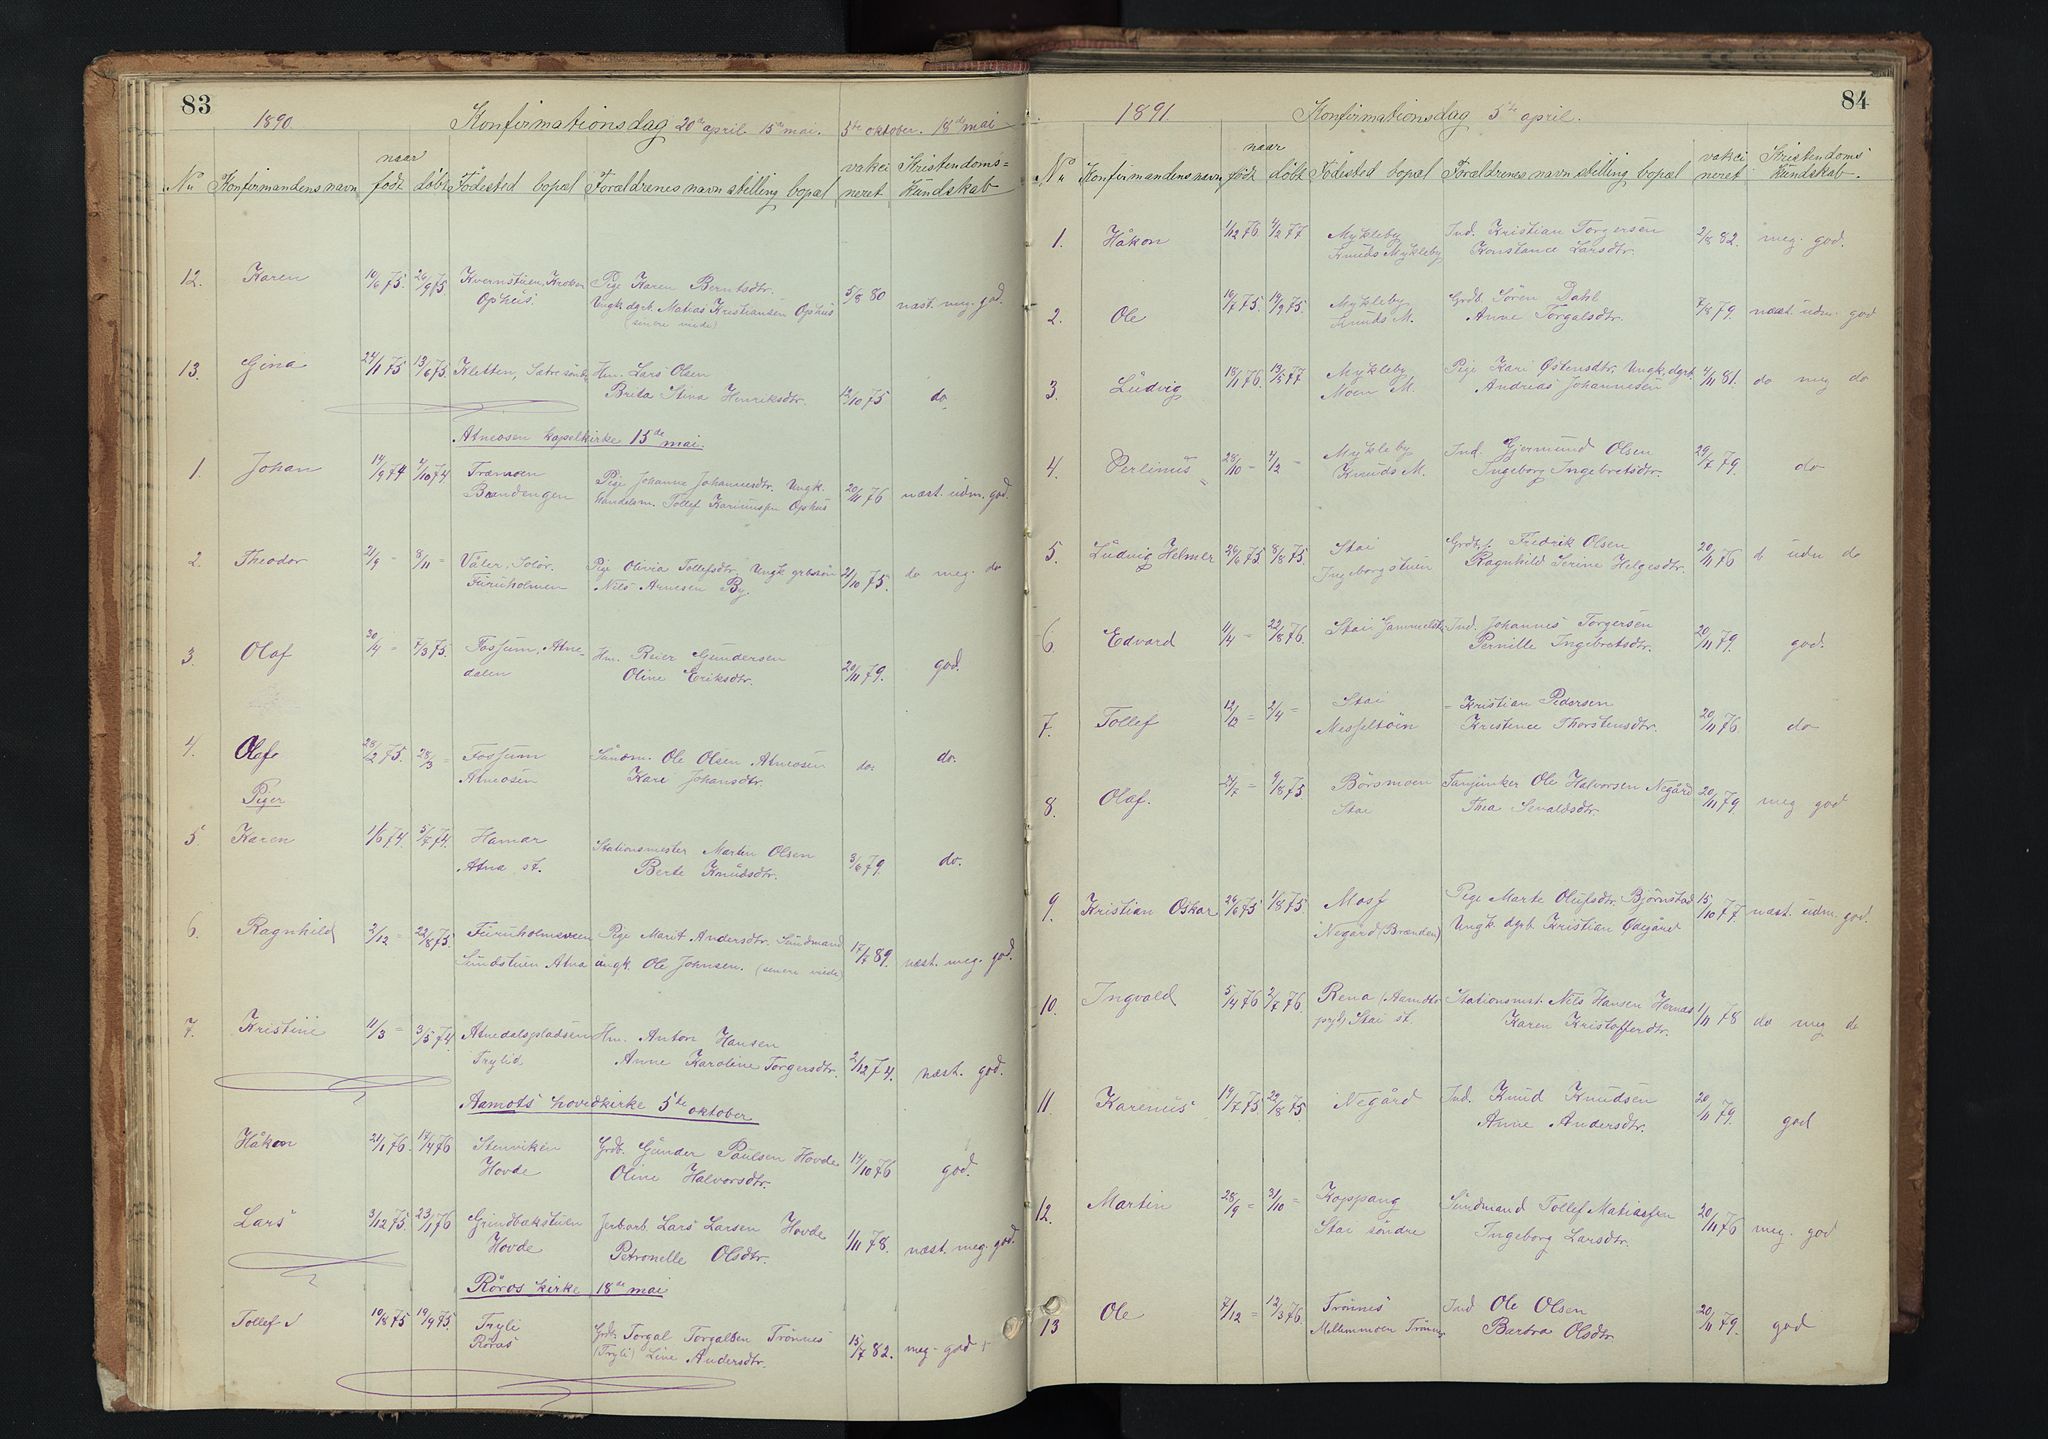 83
1890. Konfirmationsdag 20de april 15de mai. 5te oktober. 18de mai
No Konfirmandens navn naar født døbt Fødested bopæl Forældrenes navn stilling bopæl vakcineret Kristendomskundskab
12. Karen 10/6 75. 26/9 75 Kvernstuen, Kroken Pige Karen Berntsdtr. 5/8 80 næst. meg. god.
Ophus Ungk. dgrb. Matias Kristiansen Ophus
(senere viede)
13. Gina 24/1 75 13/6 75. Kletten, Sætre søndre Hm. Lars Olsen 12/10 75 do
Brita Stina Henriksdtr.
Atneosen kapelkirke 15de mai.
1. Johan 14/9 74 4/10 74 Træmoen Pige Johanne Johannesdtr. Ungk. 20/11 76 næst. udm. god.
Brændengen Handelsm. Tollef Ophus
2. Theodor 21/9 = 8/11 = Våler, Solør. Pige Olivia Tollefsdtr. Ungk. 21/10 75. do meg. do
Furuholmen Nils Arnesen By.
3. Olaf 30/4 = 7/3 75. Fossum, Atnedalen Hm. Reier Gundersen 20/11 79. god.
Oline Eriksdtr.
4. Olaf 28/2 75. 28/3 = Fossum Sundm. Ole Olsen Atneosen do. do.
Atneosen Kari Johansdtr.
Piger
5. Karen 1/6 74 5/7 74. Hamar Stationsmester Marten Olsen 3/6 79. do.
Atna st. Berte Knudsdtr.
6. Ragnhild 2/12 = 22/8 75. Furuholmsveen Pige Marit Andersdtr. Sundmand 17/7 89. næst. meg. god.
Sundstuen Atna ungk. Ole Johnsen. (senere viede)
7. Kristine 11/3 = 3/5 74. Atnedalspladsen Hm. Anton Hansen 2/12 74. næst. god.
Trylid. Anne Karoline Torgersdtr.
Aamots hovedkirke 5te oktober
Håkon 21/1 76. 17/4 76 Stenviken Grdb. Gunder Paulsen Hovde 14/10 76 god.
Hovde Oline Halvorsdtr.
Lars 3/12 75 23/1 76 Grindbakstuen Jerbarb Lars Larsen Hovde 1/11 78. næst. meg. god.
Hovde Petronelle Olsdtr.
Røros kirke 18de mai
Tollef 10/8 75 19/9 75. Tryli Grdb. Torgal Torgalsen Trønnes 15/7 82. meg. god
Røros (Tryli) Line Andersdtr.
84
1891. Konfirmationsdag 5te april.
No Konfirmandens navn naar født døbt Fødested bopæl Forældrenes navn stilling bopæl vakcineret Kristendomskundskab.
1. Håkon 1/12 76 4/2 77 Mykleby Ind. Kristian Torgersen 2/8 82. meg. god.
Knuds Mykleby Konstance Larsdtr.
2. Ole 10/7 75. 19/9 75. Mykleby Grdb. Søren Dahl 7/8 79. næst. udm. god
Knuds M. Anne Torgalsdtr.
3. Ludvig 18/11 76. 13/5 77 Mykleby Pige Kari Østensdtr. Ungk. dgrb. 4/11 81. do meg do
Moen M. Andreas Johannesen
4. Perlinus 28/10 = 4/2 = Mykleby Ind. Gjermund Olsen 29/7 79. do
Knuds M. Ingeborg Ingebretsdtr.
5. Ludvig Helmer 28/6 75 8/8 75. Stai Grdbf. Fredrik Olsen 20/11 76 d udm do
Ingeborgstuen Ragnhild Serine Helgesdtr.
6 Edvard 11/4 = 22/8 76. Stai Gammelstu Ind. Johannes Torgersen 20/11 79. god.
Pernille Ingebretsdtr.
7. Tollef 12/13 = 2/4 = Stai = Kristian Pedersen 20/11 76 do
Messeltøen Kristence Thorstensdtr.
8. Olaf. 21/7 = 9/8 75. Børsmoen Ole Halvorsen Negård 20/11 79. meg god
Stai Thea Sevaldsdtr.
9. Kristian Oskar 26/6 75 1/8 75. Mosf Pige Marte Olufsdtr. Bjørnstad 15/10 77 næst. udm. god.
Negård (Brænden) Ungk. dgrb. Kristian Ødegård
10. Ingvald 5/4 76 2/7 76. Rena (Aamots Stationsmst. Nils Hansen Hernæs 1/11 78 do meg do
pgjld) Stai st Karen Kristoffersdtr.
11 Karenus 19/7 75 22/8 75. Negård Ind. Knud Knudsen 20/11 79. god
Anne Andersdtr.
12. Martin 28/9 = 31/10 = Koppang Sundmand Tollef Matiassen 20/11 76 meg. god
Stai søndre Ingeborg Larsdtr.
13 Ole 7/12 = 12/3 76. Trønnes Ind Ole Olsen 20/11 79. god
Mellemmoen Trønnes Barbra Olsdtr.